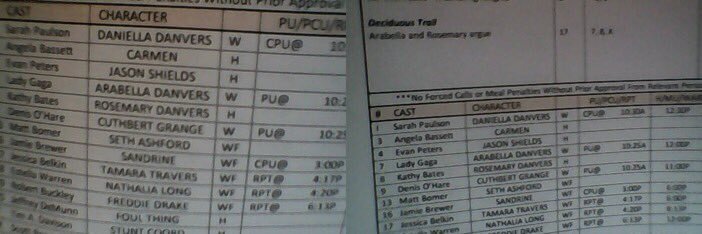 Penalties Without Prior Approval
CAST CHARACTER PU/PCU/R
Sarah Paulson DANIELLA DANVERS W CPU@ 10
Angela Bassett CARMEN H
Evan Peters JASON SHIELDS H
Lady Gaga ARABELLA DANVERS W PU@ 10:2
Kathy Bates ROSEMARY DANVERS W
Denis O'Hare CUTHBERT GRANGE W PU@ 10:25
Matt Bomer SETH ASHFORD WF
Jamie Brewer SANDRINE WF CPU@ 3:00P
Jessica Belkin TAMARA TRAVERS WF RPT@ 4:17P
Estella Warren NATHALIA LONG WF RPT@ 4:20P
Robert Buckley FREDDIE DRAKE WF RPT@ 6:13P
Jeffrey DeMunn FOUL THING H
Tim A. Davison STUNT COORD
Deciduous Trail
Arabella and Rosemary argue 17
***No Forced Calls or Meal Penalties Without Prior Approval From Relevant
# CAST CHARACTER PU/PCU/RPT
1 Sarah Paulson DANIELLA DANVERS W CPU@ 10:30A 12:30P
3 Angela Bassett CARMEN H
4 Evan Peters JASON SHIELDS H
7 Lady Gaga ARABELLA DANVERS W PU@ 10:25A 12:00P
8 Kathy Bates ROSEMARY DANVERS W
9 Denis O'Hare CUTHBERT GRANGE W PU@ 10:25A 11:00P
13 Matt Bomer SETH ASHFORD WF
16 Jamie Brewer SANDRINE WF CPU@ 3:00P 6:00P
17 Jessica Belkin TAMARA TRAVERS WF RPT@ 4:17P
NATHALIA LONG WF RPT@ 4:20P
FREDDIE DRAKE WF RPT@ 6:13P